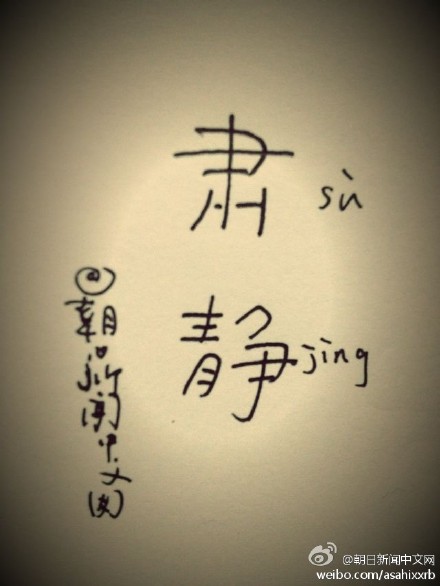 肃 sù
静 jing
@朝日新闻中文
@朝日新闻中文网
weibo.com/asahixxrb